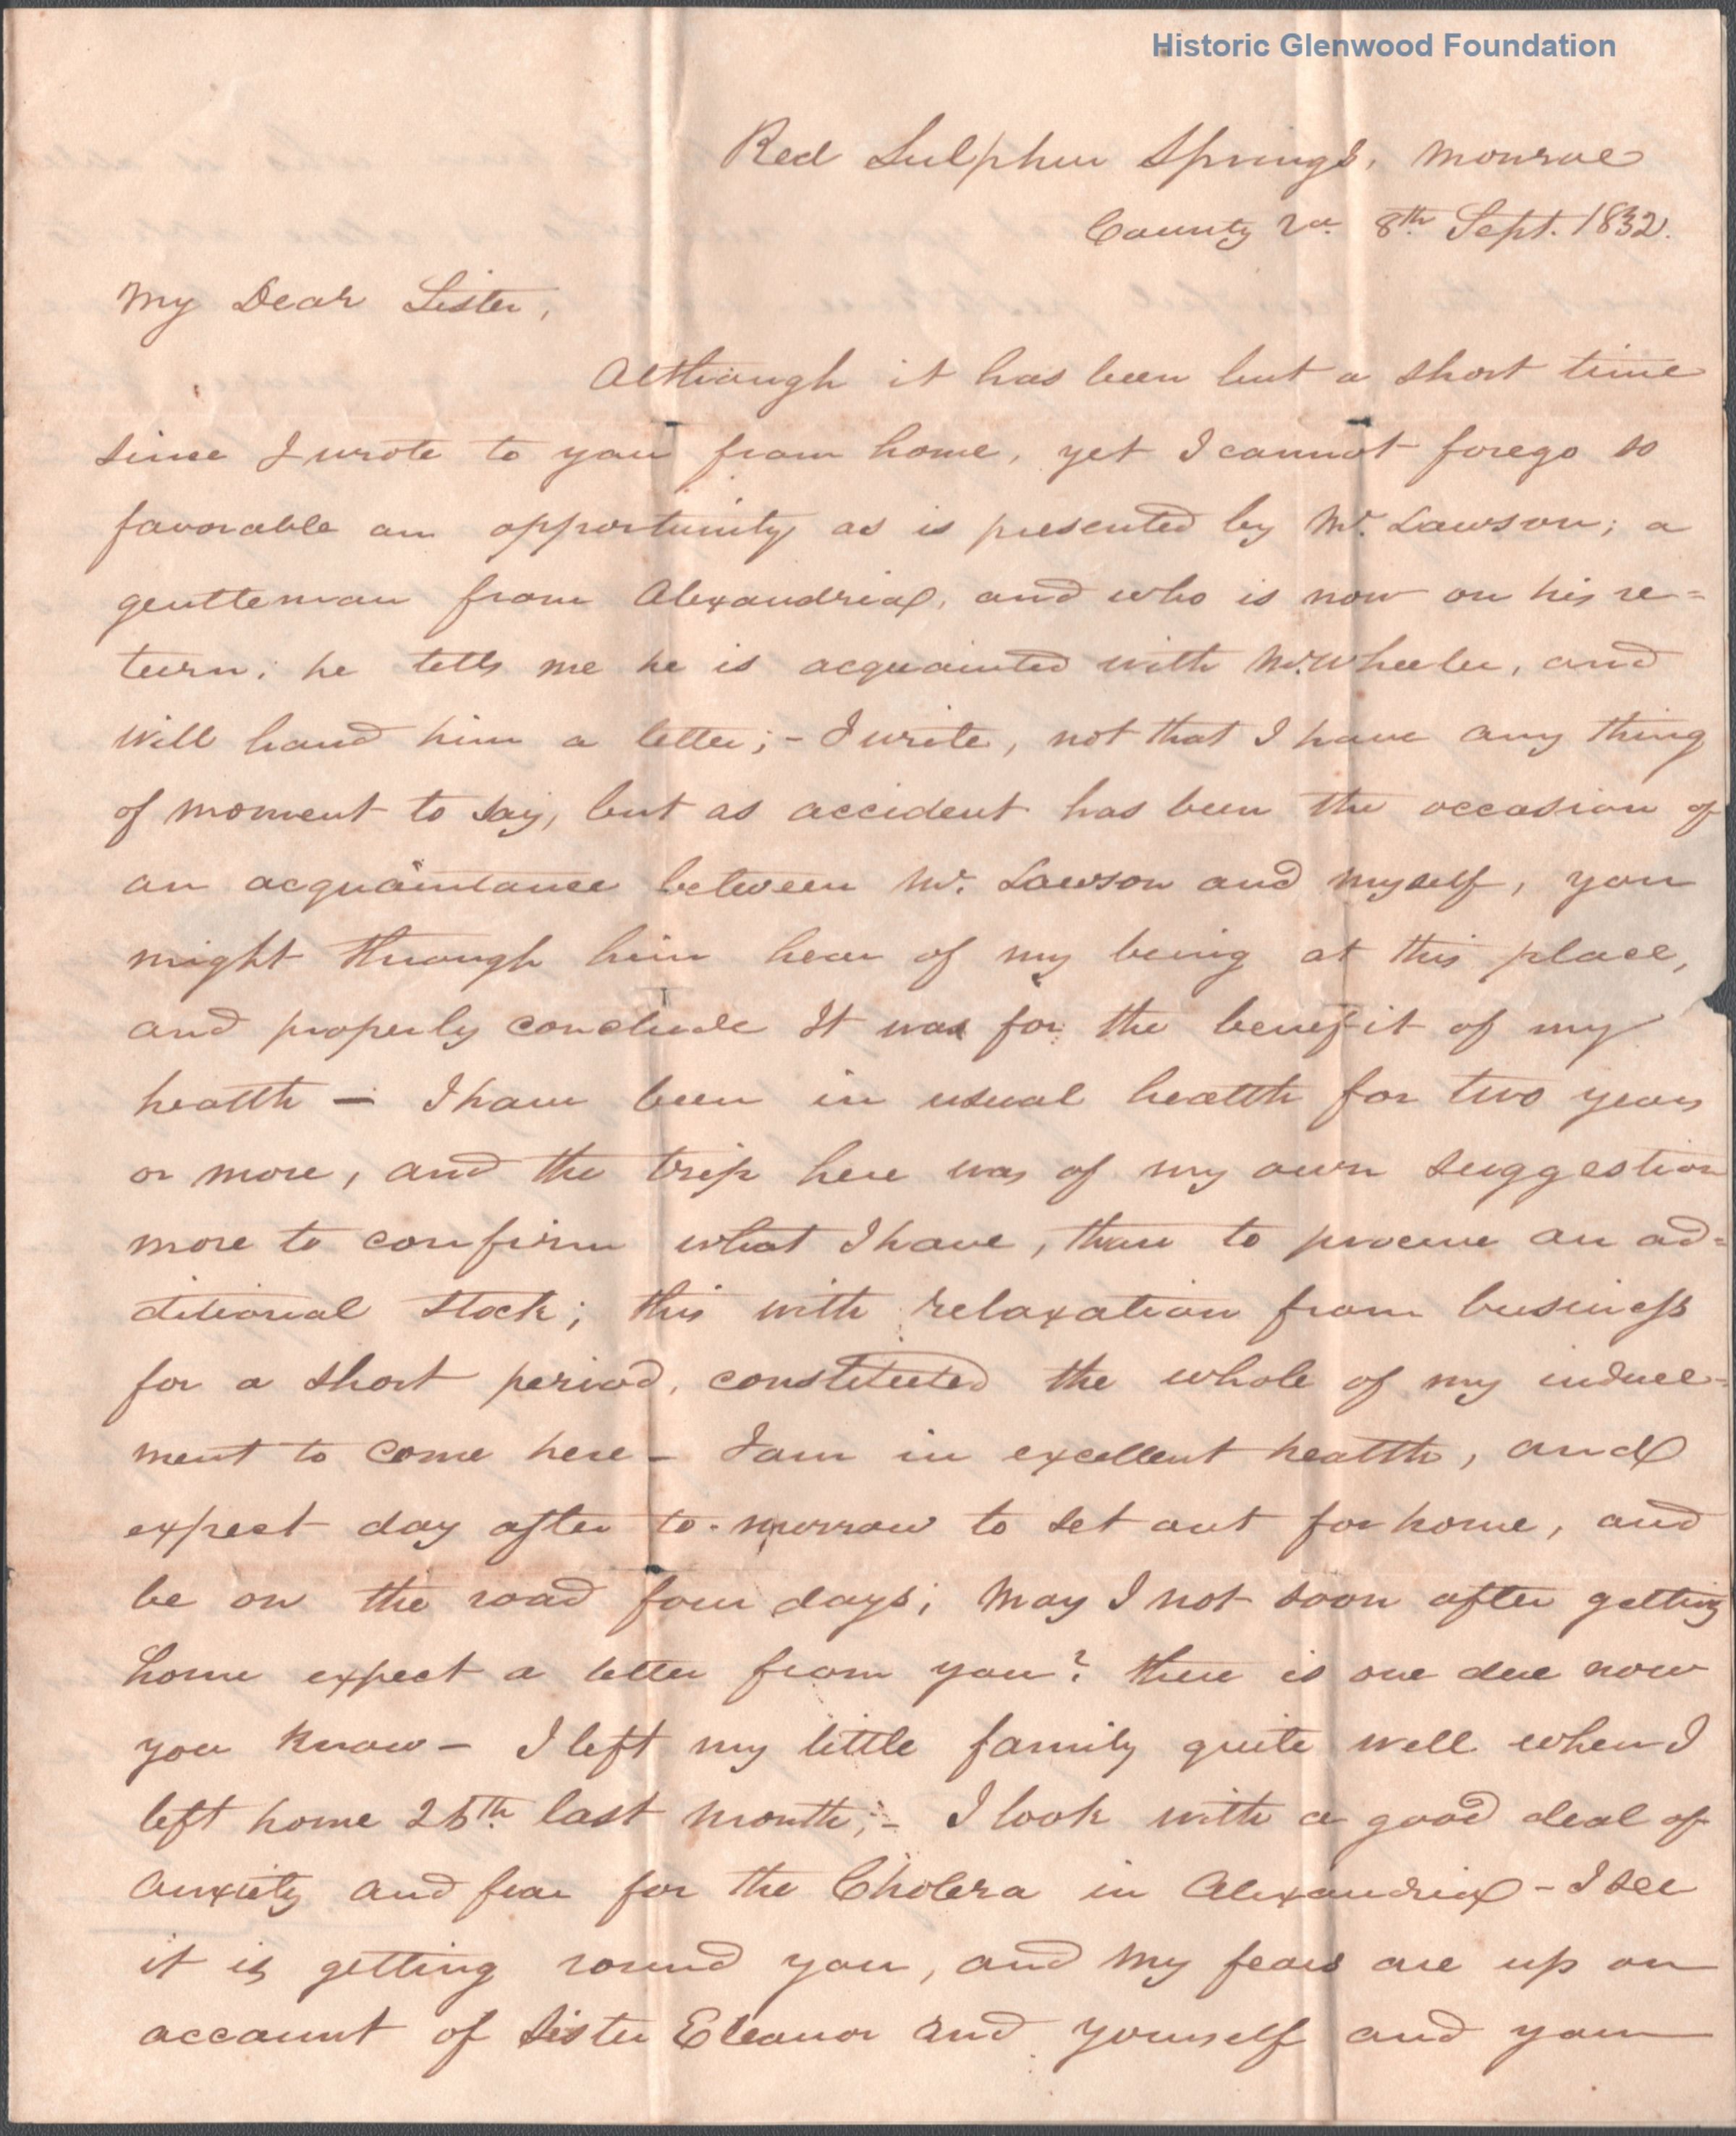 Historic Glenwood Foundation
Red Sulphur Springs, Monroe
County Va. 8th Sept. 1832.
My Dear Sister,
Although it has been but a short time
since I wrote to you from home, yet I cannot forego so
favorable an opportunity as is presented by Mr. Lawson; a
gentleman from Alexandria, and who is now on his re=
turn; he tells me he is acquainted with Mr. Wheeler, and
will hand him a letter; - I write, not that I have any thing
of moment to say, but as accident has been the occasion of
an acquaintance between Mr. Lawson and myself, you
might through him hear of my being at this place,
and properly conclude It was for the benefit of my
health - I have been in usual health for two years
or more, and the trip here was of my own suggestion
more to confirm what I have, than to procure an ad=
ditional stock; this with relaxation from business
for a short period, constituted the whole of my induce=
ment to come here - I am in excellent health, and
expect day after to-morrow to set out for home, and
be on the road four days; May I not soon after getting
home expect a letter from you? there is one due now
you know - I left my little family quite well when I
left home 25th last month; - I look with a good deal of
anxiety and fear for the Cholera in Alexandria - I see
it is getting round you, and my fears are up on
account of Sister Eleanor and yourself and your